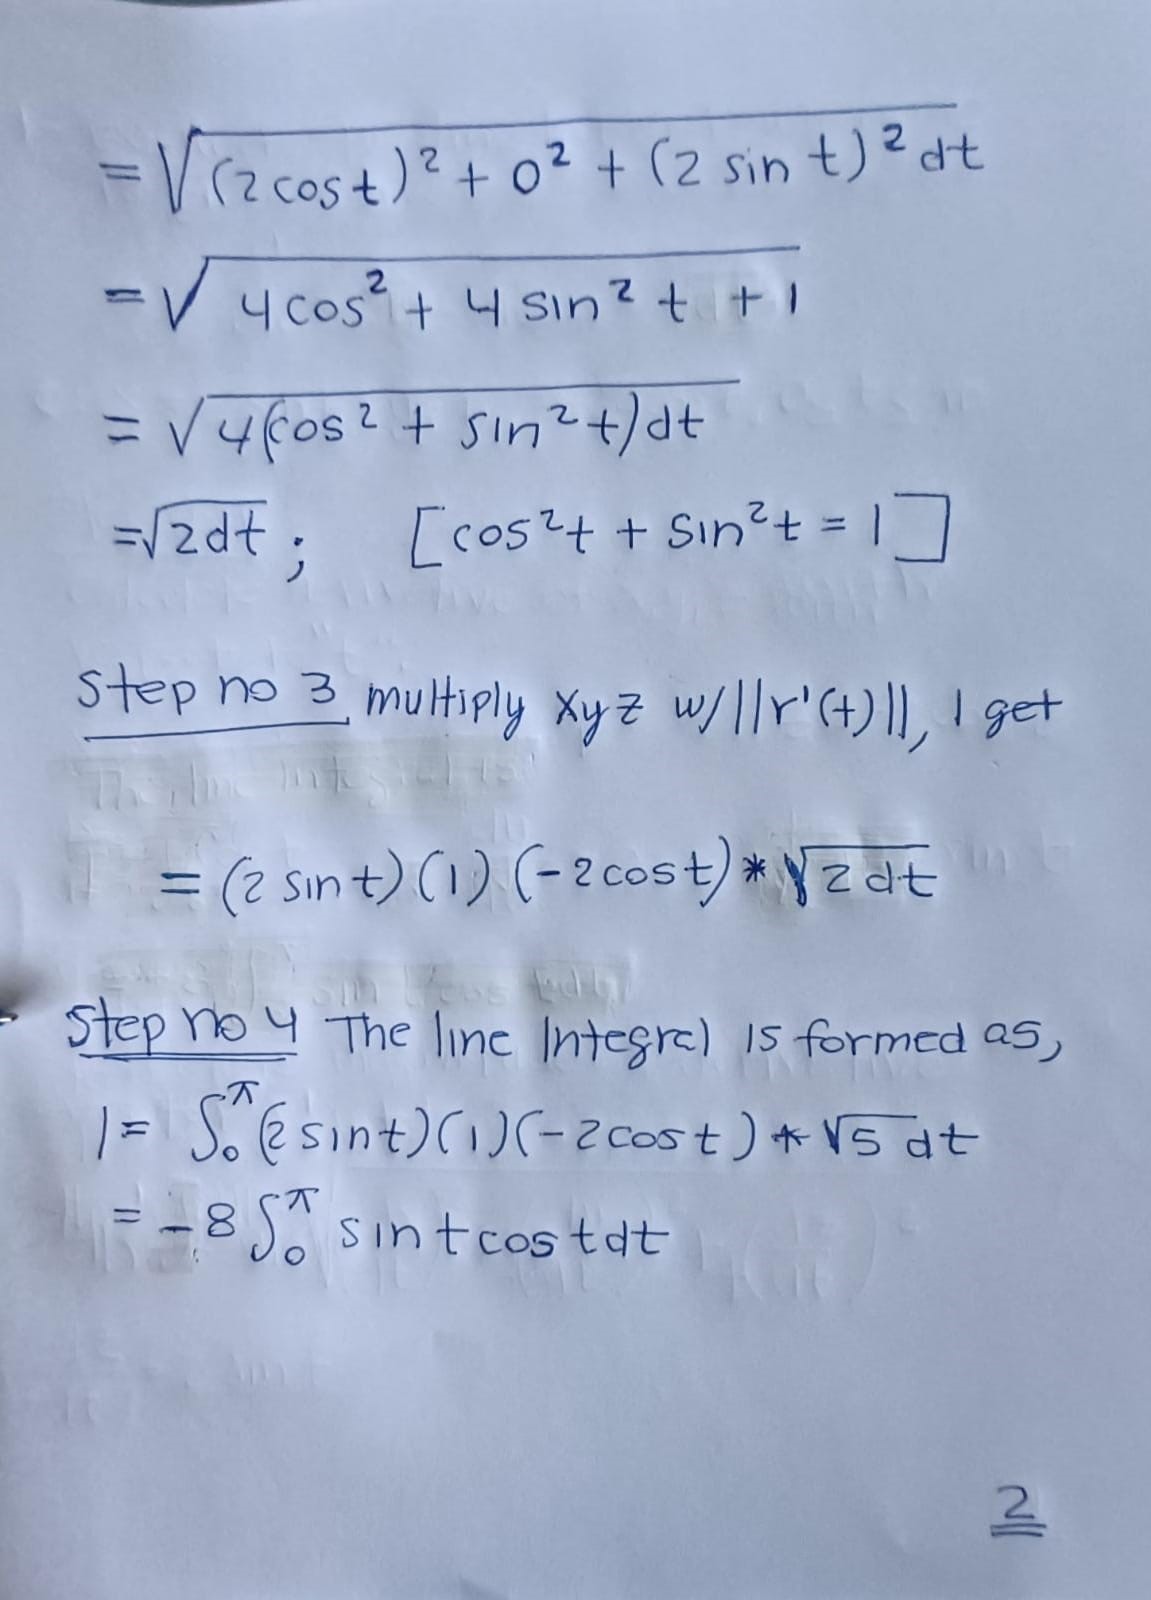 = √(2cost)² + 0² + (2 sin t)² dt
= √4cos² + 4 sin² t + 1
= √4(cos² + sin²t)dt
= √2dt ; [cos²t + sin²t = 1]
Step no 3 multiply xyz w/ ||r'(t)||, I get
= (2 sin t)(1)(-2cost) * √2 dt
Step no 4 The line Integral is formed as,
I = ∫₀^π (2 sint)(1)(-2cost) * √5 dt
= -8 ∫₀^π sint cos tdt
2